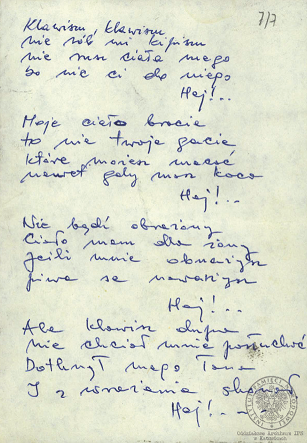 7/7
Klawiszu, klawiszu
nie rób mi kipiszu
nie rusz ciała mego
bo nic ci do niego
Hej!..
Moje ciało bracie
to nie twoje gacie
które możesz macać
nawet gdy masz kaca
Hej!..
Nie bądź obrażony
Ciało mam dla żony
Jeśli mnie obmacasz
piwa se nawarzysz
Hej!..
Ale klawisz dupa
nie chciał mnie posłuchać
Dotknął mego łona
I z wrażenia skonał
Hej!..
INSTYTUT PAMIĘCI
Oddziałowe Archiwum IPN
w Katowicach